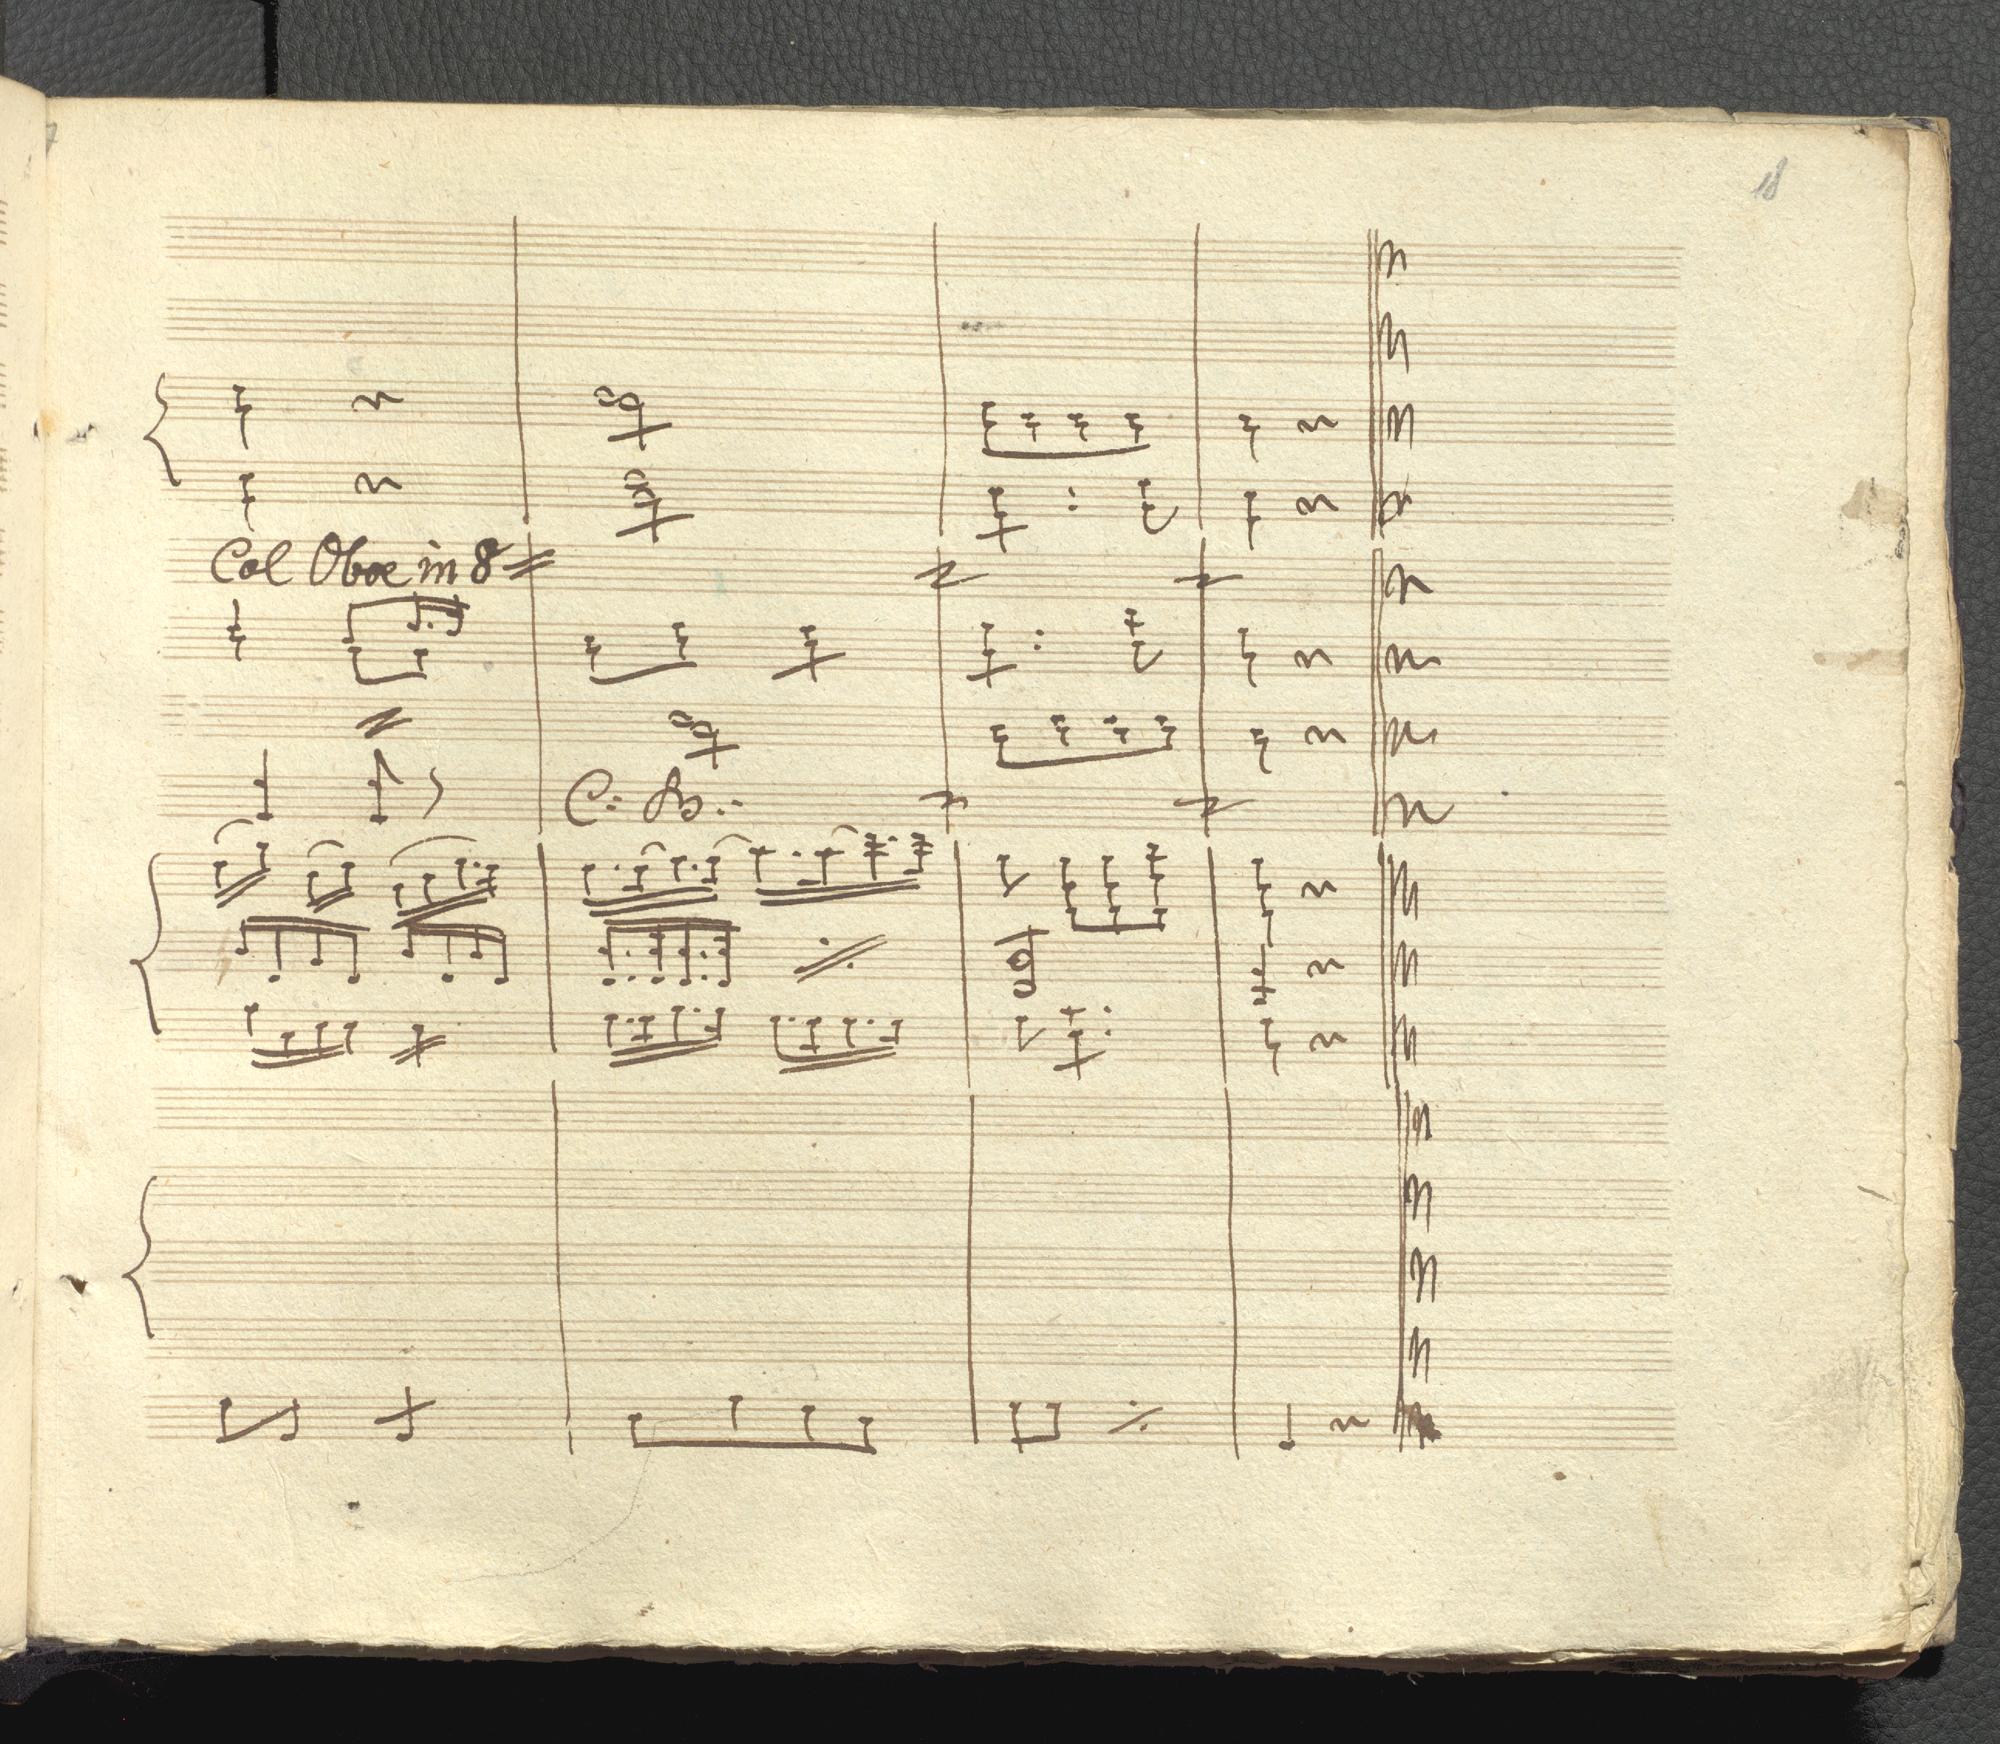 18
Col Oboe in 8
C: B: